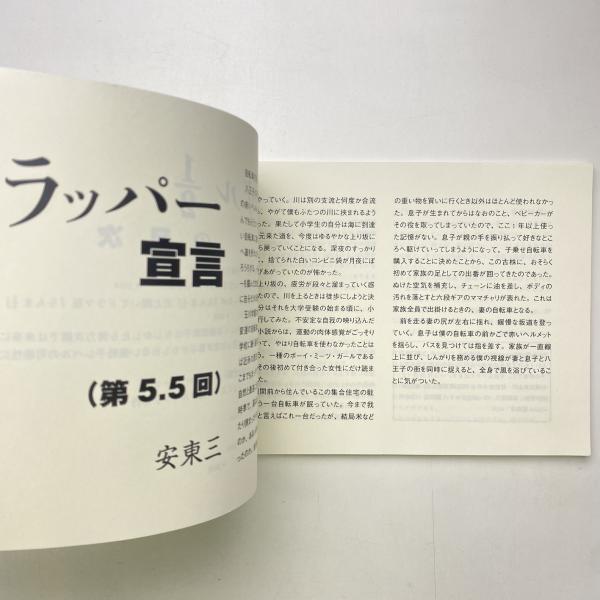 ラッパー
宣言
(第 5.5 回)
安東三
やっていく。川は別の支流と何度か合流
、やがて僕もふたつの川に挟まれるよう
った。果たして小学生の自分は海に到達
元来た道を、今度はゆるやかな上り坂で
ら戻っていくことになる。深夜のすっかり
に、捨てられた白いコンビニ袋が月夜にぼ
びあがっていたのが怖かった。
上り坂の、疲労が段々と溜まっていく感
たので、川を上るときは徒歩にしようと決
分はそれを大学受験の始まる頃に、小
行してみた。不安定な自我の映り込んだ
小説からは、運動の肉体感覚がごっそり
て、やはり自転車を使わなかったことは
う。一種のボーイ・ミーツ・ガールである
その後初めて付き合った女性にだけ読ま
た。
間前から住んでいるこの集合住宅の駐
う一台自転車が眠っていた。今まで我
と言えばこれ一台だったが、結局米など
の重い物を買いに行くとき以外はほとんど使われなかっ
た。息子が生まれてからはなおのこと、ベビーカーが
その役を取ってしまっていたので、ここ1年以上使っ
た記憶がない。息子が親の手を振り払って好きなとこ
ろへ駆けていってしまうようになって、子乗せ自転車を
購入することに決めたことから、この古株に、おそらく
初めて家族の足としての出番が回ってきたのであった。
ぬけた空気を補充し、チェーンに油を差し、ボディの
汚れを落とすと六段ギアのママチャリが表れた。これは
家族全員で出掛けるときの、妻の自転車となる。
前を走る妻の尻が左右に揺れ、緩慢な坂道を登っ
ていく。息子は僕の自転車の前かごで赤いヘルメット
を揺らし、バスを見つけては指を差す。家族が一直線
上に並び、しんがりを務める僕の視線が妻と息子と八
王子の街を同時に捉えると、全身で風を浴びているこ
とに気がついた。